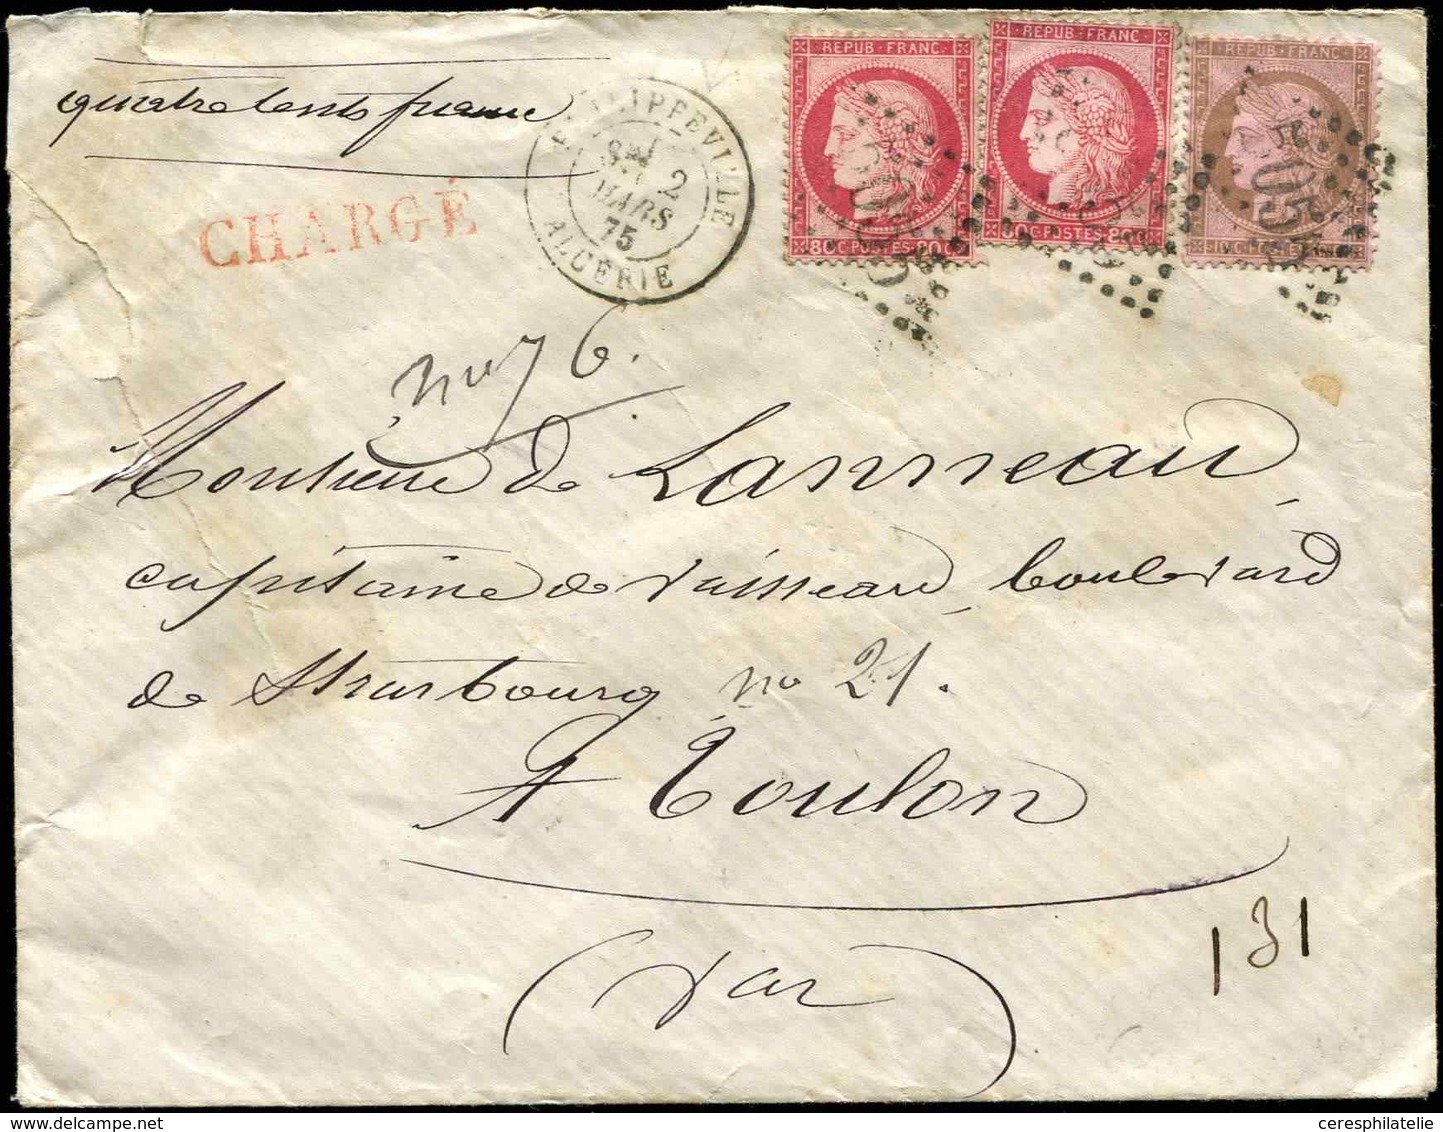 quatre cents francs
CHARGÉ
PHILIPPEVILLE
2
MARS
75
ALGÉRIE
REPUB · FRANC
80 C · POSTES · 80 C
REPUB · FRANC
80 C · POSTES · 80 C
REPUB · FRANC
5051
no 76.
Monsieur de Lanneau,
capitaine de vaisseau, boulevard
de Strasbourg, no 21.
A Toulon
(Var)
131
delcampe.net
ceresphilatelie